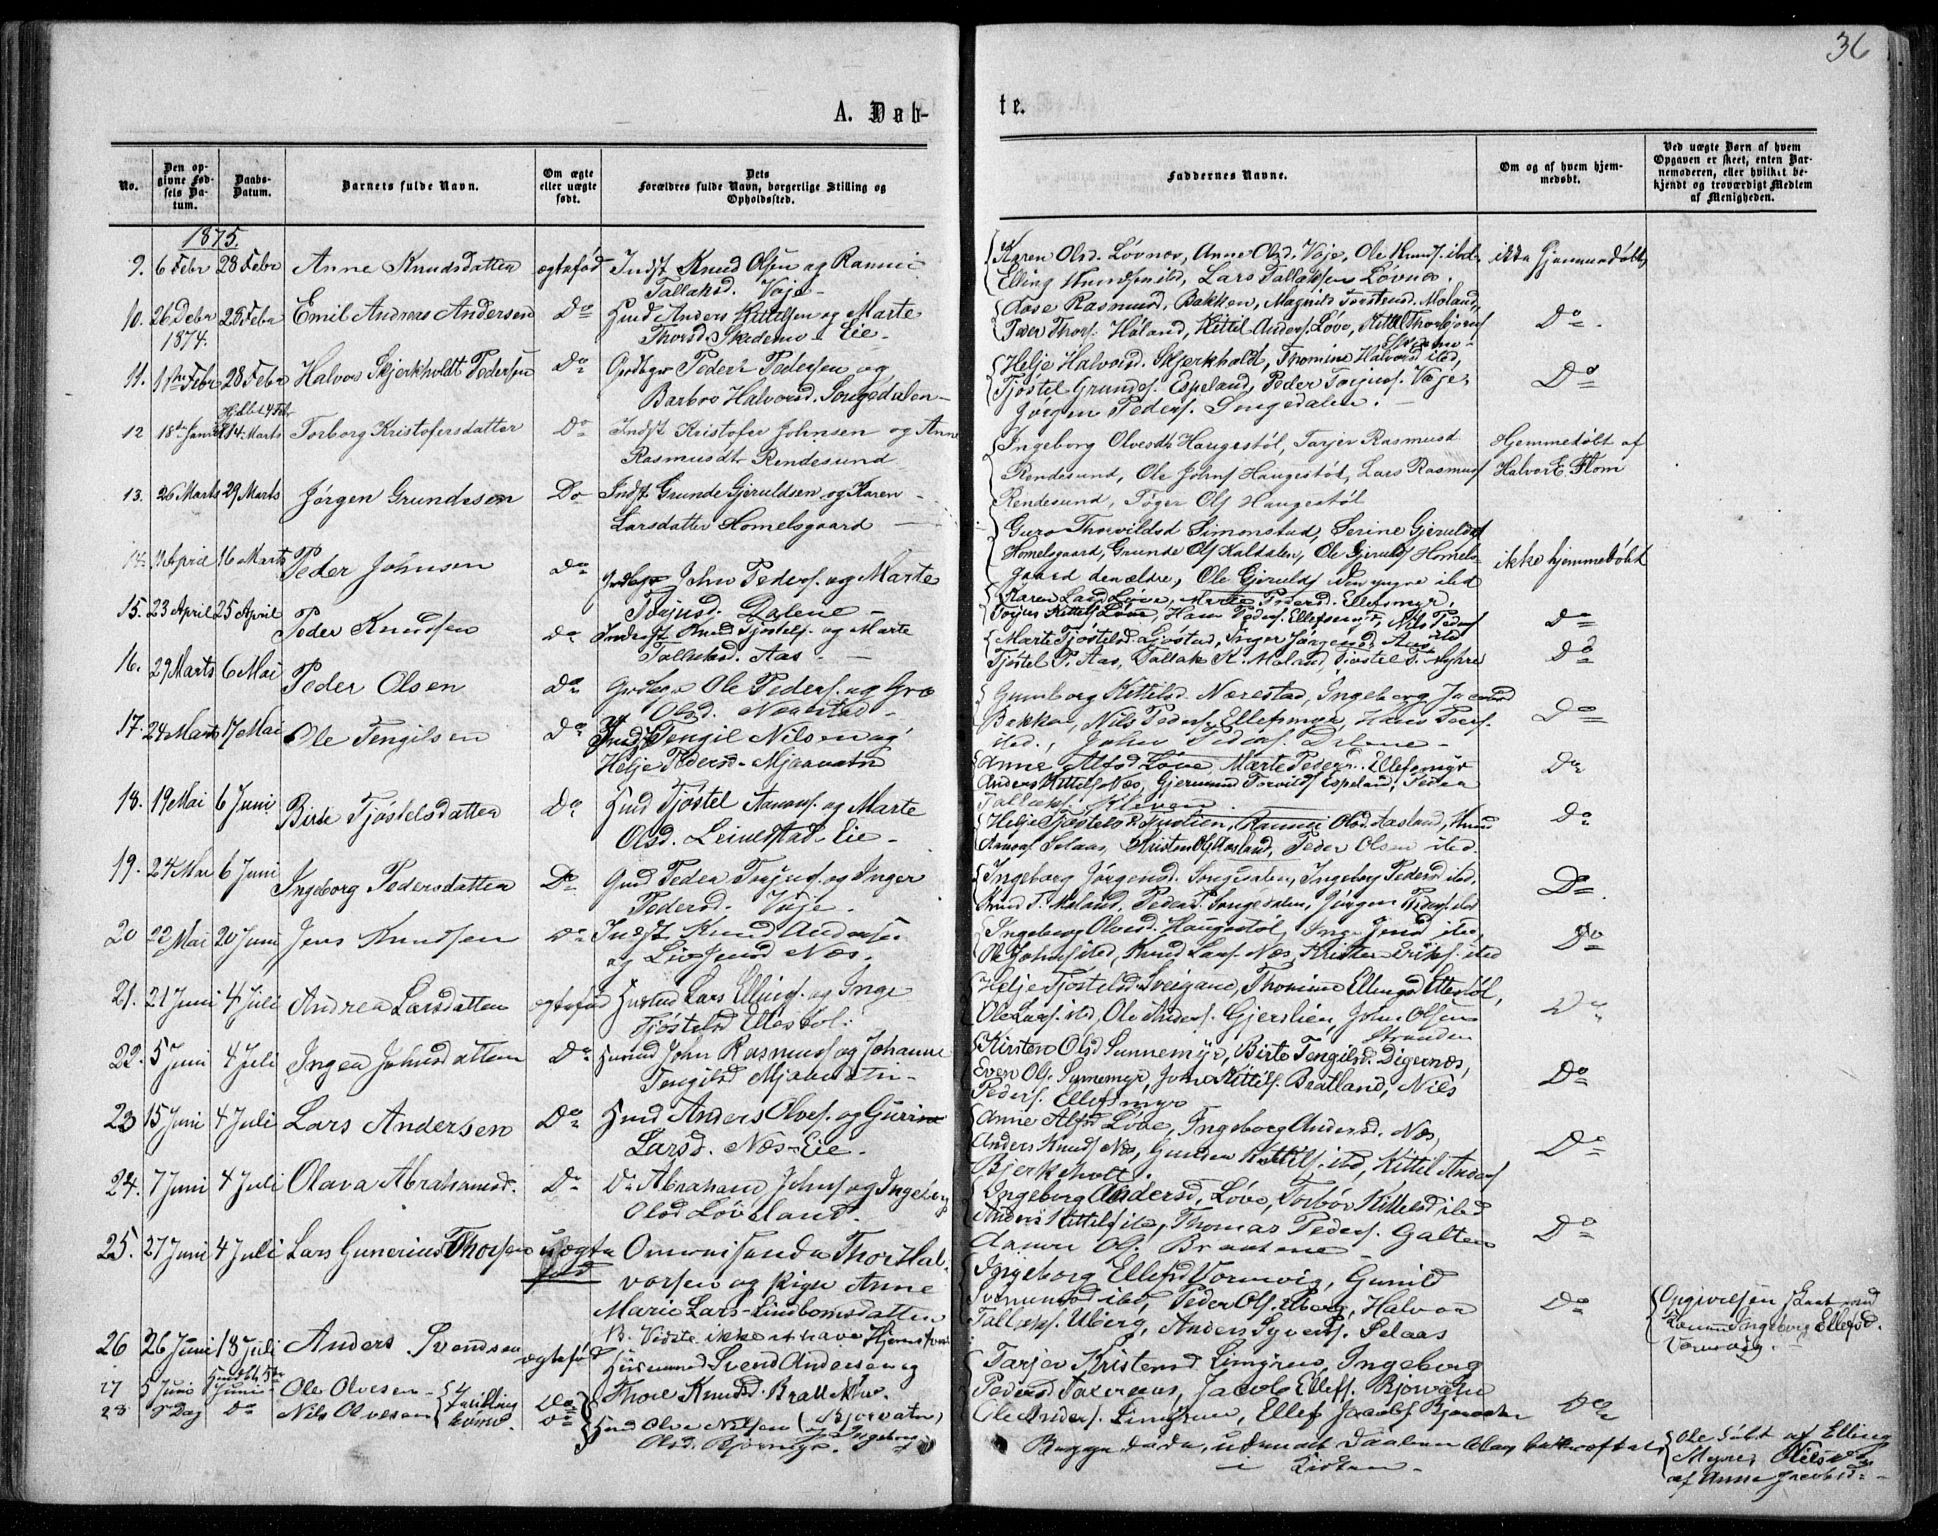 36
A. Døb-
te.
No.
Den op-
givne Fød-
sels Da-
tum.
Daabs-
Datum.
Barnets fulde Navn.
Om ægte
eller uægte
født.
Dets
Forældres fulde Navn, borgerlige Stilling og
Opholdssted.
Faddernes Navne.
Om og af hvem hjem-
medøbt.
Ved uægte Børn af hvem
Opgaven er skeet, enten Bar-
nemoderen, eller hvilket be-
kjendt og troværdigt Medlem
af Menigheden.
1875.
9. 6 Febr 28 Febr Anne Knudsdatter ægtefød Indst Knud Olsen og Ranni
Tallaksd. Vaje
Karen Olsd. Løvnes, Anne Olsd. Vaje, Ole Knuds. ibd.
Elling Knudsen ibd, Lars Tallaksen Løvnes. ikke hjemmedøbt
10. 26 Debr 28 Febr Emil Andreas Andersen Do Husd Anders Kittilsen og Marte
1874. Thorsd. Skedsmo Eie
Aase Rasmusd. Bakken, Magnild Tarstensd. Moland,
Iver Thors. Høland, Kittil Anders. Løve, Kittil Thorbjørns Do
11. 1ste Febr 28 Febr Halvor Skjerkholdt Pedersen Do Grdbgr Peder Pedersen og
Barbro Halvorsd. Songedalen
Helje Halvorsd. Skjerkholdt, Thomine Halvorsd ibd,
Tjøstel Grundes. Espeland, Peder Torjus. Vaje,
Jørgen Peders. Songedalen. Do
12 18de Janr 14 Marts Torborg Kristofersdatter Do Indst Kristofer Johnsen og Anne
Rasmusdtr Rendesund
Ingeborg Olvesdtr Haugestøl, Tarjer Rasmusd
Rendesund, Ole Johns Haugestøl, Lars Rasmus
Rendesund, Tøger Ols Haugestøl
Hjemmedøbt af
Halvor E. Flom
13. 26 Marts 29 Marts Jørgen Grundesen Do Indst Grunde Gjeruldsen og Karen
Larsdatter Homelsgaard
Guro Thorvildsd Simonstad, Serine Gjeruldsd
Homelsgaard, Grunde Ols Kaldalen, Ole Gjerulds Homels-
gaard den ældre, Ole Gjerulds den yngre ibd ikke hjemmedøbt
14. April 16 Marts Peder Johnsen Do Grdbgr John Peders. og Marte
Torjusd. Dalene
Karen Larsd Løve, Marte Pedersd. Ellefsmyr,
Torjus Kittils Løve, Hans Peders. Ellefsmyr, Nils Peders
ibd Do
15. 23 April 25 April Peder Knudsen Do Indst Knud Tjøstels. og Marte
Tallaksd. Aas
Marte Tjøstelsd. Løjstad, Inger Jørgensd. Aas,
Tjøstel P. Aas, Tallak K. Moland, Tjøstel T. Myhre Do
16. 29 Marts 6 Mai Peder Olsen Do Grdbgr Ole Peders. og Gro
Olsd. Nærestad
Gunborg Kittilsd. Nærestad, Ingeborg Jacobsd
Bakken, Nils Peders. Ellefsmyr, Hans Peders.
ibd., John Peders. Dalene Do
17. 24 Marts 17 Mai Ole Tengilsen Do Indst Tengil Nilsen og
Helje Pedersd. Mjaavatn
Anne Alfsd Løve, Marte Peders. Ellefsmyr
Anders Kittils Næs, Gjermund Torvilds Espeland, Peder
Tallaks. Kleven Do
18. 19 Mai 6 Juni Birte Tjøstelsdatter Do Husd Tjøstel Aanons. og Marte
Olsd. Leivestad Eie
Ranni Olsd. Aasland, Knud
Aanons Selaas, Kristen Ols Aasland, Peder Olsen ibd. Do
19. 24 Mai 6 Juni Ingeborg Pedersdatter Do Grd Peder Torjus. og Inger
Pedersd. Vaje
Ingeborg Jørgensd. Songedalen, Ingeborg Pedersd ibd,
Knud T. Moland, Peder P. Songedalen, Jørgen Peders. ibd Do
20 22 Mai 20 Juni Jens Knudsen Do Indst Knud Andersen
og Liv Jensd Næs
Ingeborg Olvesd. Haugestøl, Inge Jensd ibd,
Ole Johns ibd, Knud Lars. Næs, Kristen Eriks. ibd Do
21. 21 Juni 4 Juli Andrea Larsdatter ægtefød Husmd Lars Ellings. og Inge
Tjøstelsd Ellestøl.
Helje Tjøstelsd Sveigane, Thomine Ellingsd Ellestøl,
Ole Lars. ibd, Ole Anders. Gjerslien, John Olsen
Stranden Do
22. 5 Juni 4 Juli Ingea Johnsdatter Do Husmd John Rasmus. og Johanne
Tengilsd Mjaavatn
Kirsten Olsd Sunnemyr, Birte Tengilsd. Digernæs,
Even Ols. Sunnemyr, John Kittils. Bratland, Nils
Peders. Ellefsmyr Do
23 15 Juni 4 Juli Lars Andersen Do Husd Anders Olves. og Gurine
Larsd. Næs-Eie
Anne Alfsd Løve, Ingeborg Andersd. Næs,
Anders Knuds Næs, Gunder Kittils. ibd, Kittil Anders
Bjerkeholt. Do
24. 7 Juni 4 Juli Olava Abrahamsd. Do Do Abraham Johns. og Ingeborg
Olsd Løveland.
Ingeborg Andersd. Løve, Torbor Kittelsd ibd
Anders Kittels ibd, Thomas Peders. Galten
Aanon Ols. Braatene Do
25. 27 Juni 4 Juli Lars Gunerius Thorsen uægte
fød Omreisende Thor Hal-
vorsen og Pigen Anne
Marie Lars-Lindbomsdatter
B. Vidste ikke at have Hjemstavn
Ingeborg Ellefsd Vormvig, Gunild
ibd, Peder Ols. Uberg, Halvor
Tallaks. Uberg, Anders Syvers. Selaas Do
Opgivelsen skeet ved
Ingeborg Ellefsd.
Vormvig.
26 26 Juni 18 Juli Anders Svendsen ægtefød Husmand Svend Andersen og
Thore Knudsd. Bratthus.
Tarjer Kristensd Limgruv, Ingeborg
Pedersd Taxeraas, Jacob Ellefs. Bjorvatn
Ole Anders. Limgruv, Ellef Jacobs Bjorvatn Do
27 5 Juni Juni Ole Olvesen Tvilling Do
28 s Dag Do Nils Olvesen børn Do Husd Olve Nilsen (Bjorvatn)
Olsd. og Ingeborg
Begge døde, uden at Daaben blev bekræftet
i Kirken
Ole døbt af Elling
Myre, Nils
af Anne Jacobsd.